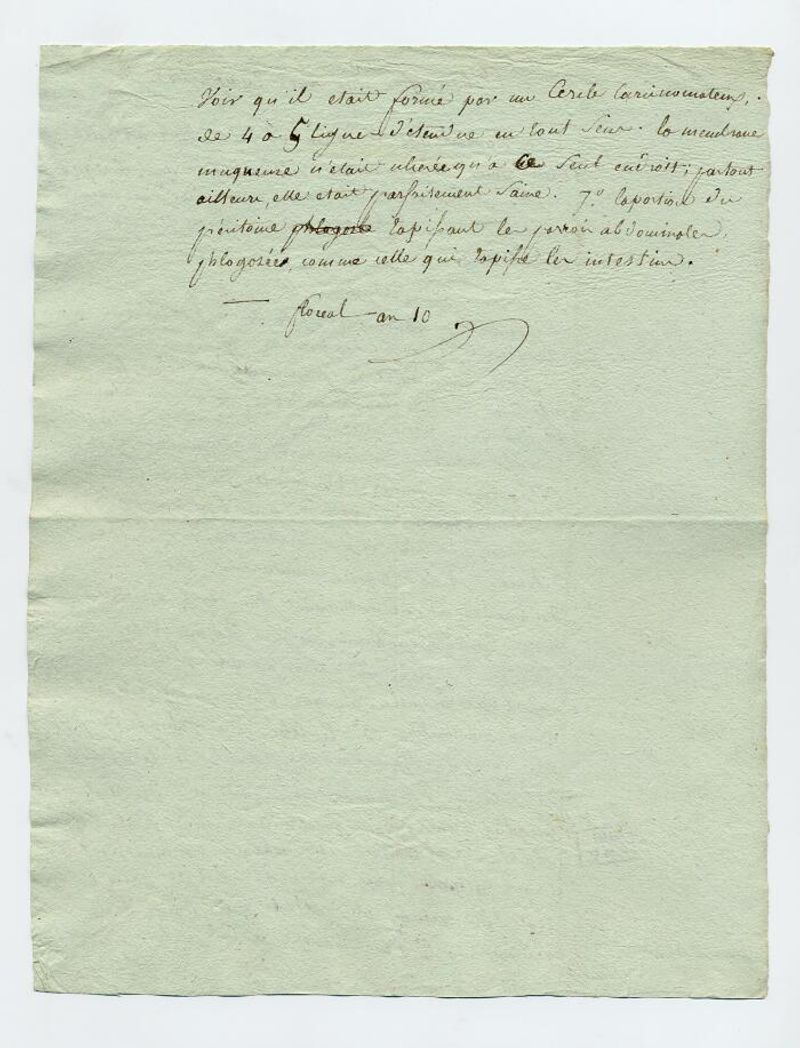 Voir qu'il etait formé par un Cercle Carcinomateux,
de 4 à 5 lignes d'etendue en tout Sens. la membrane
muqueuse n'etait ulcerée qu'a Ce Seul endroit; partout
ailleurs, elle etait parfaitement Saine. 7.º la portion du
péritoine phlogosé tapissant les parois abdominales,
phlogosée, comme celle qui tapisse les intestins.
floreal an 10